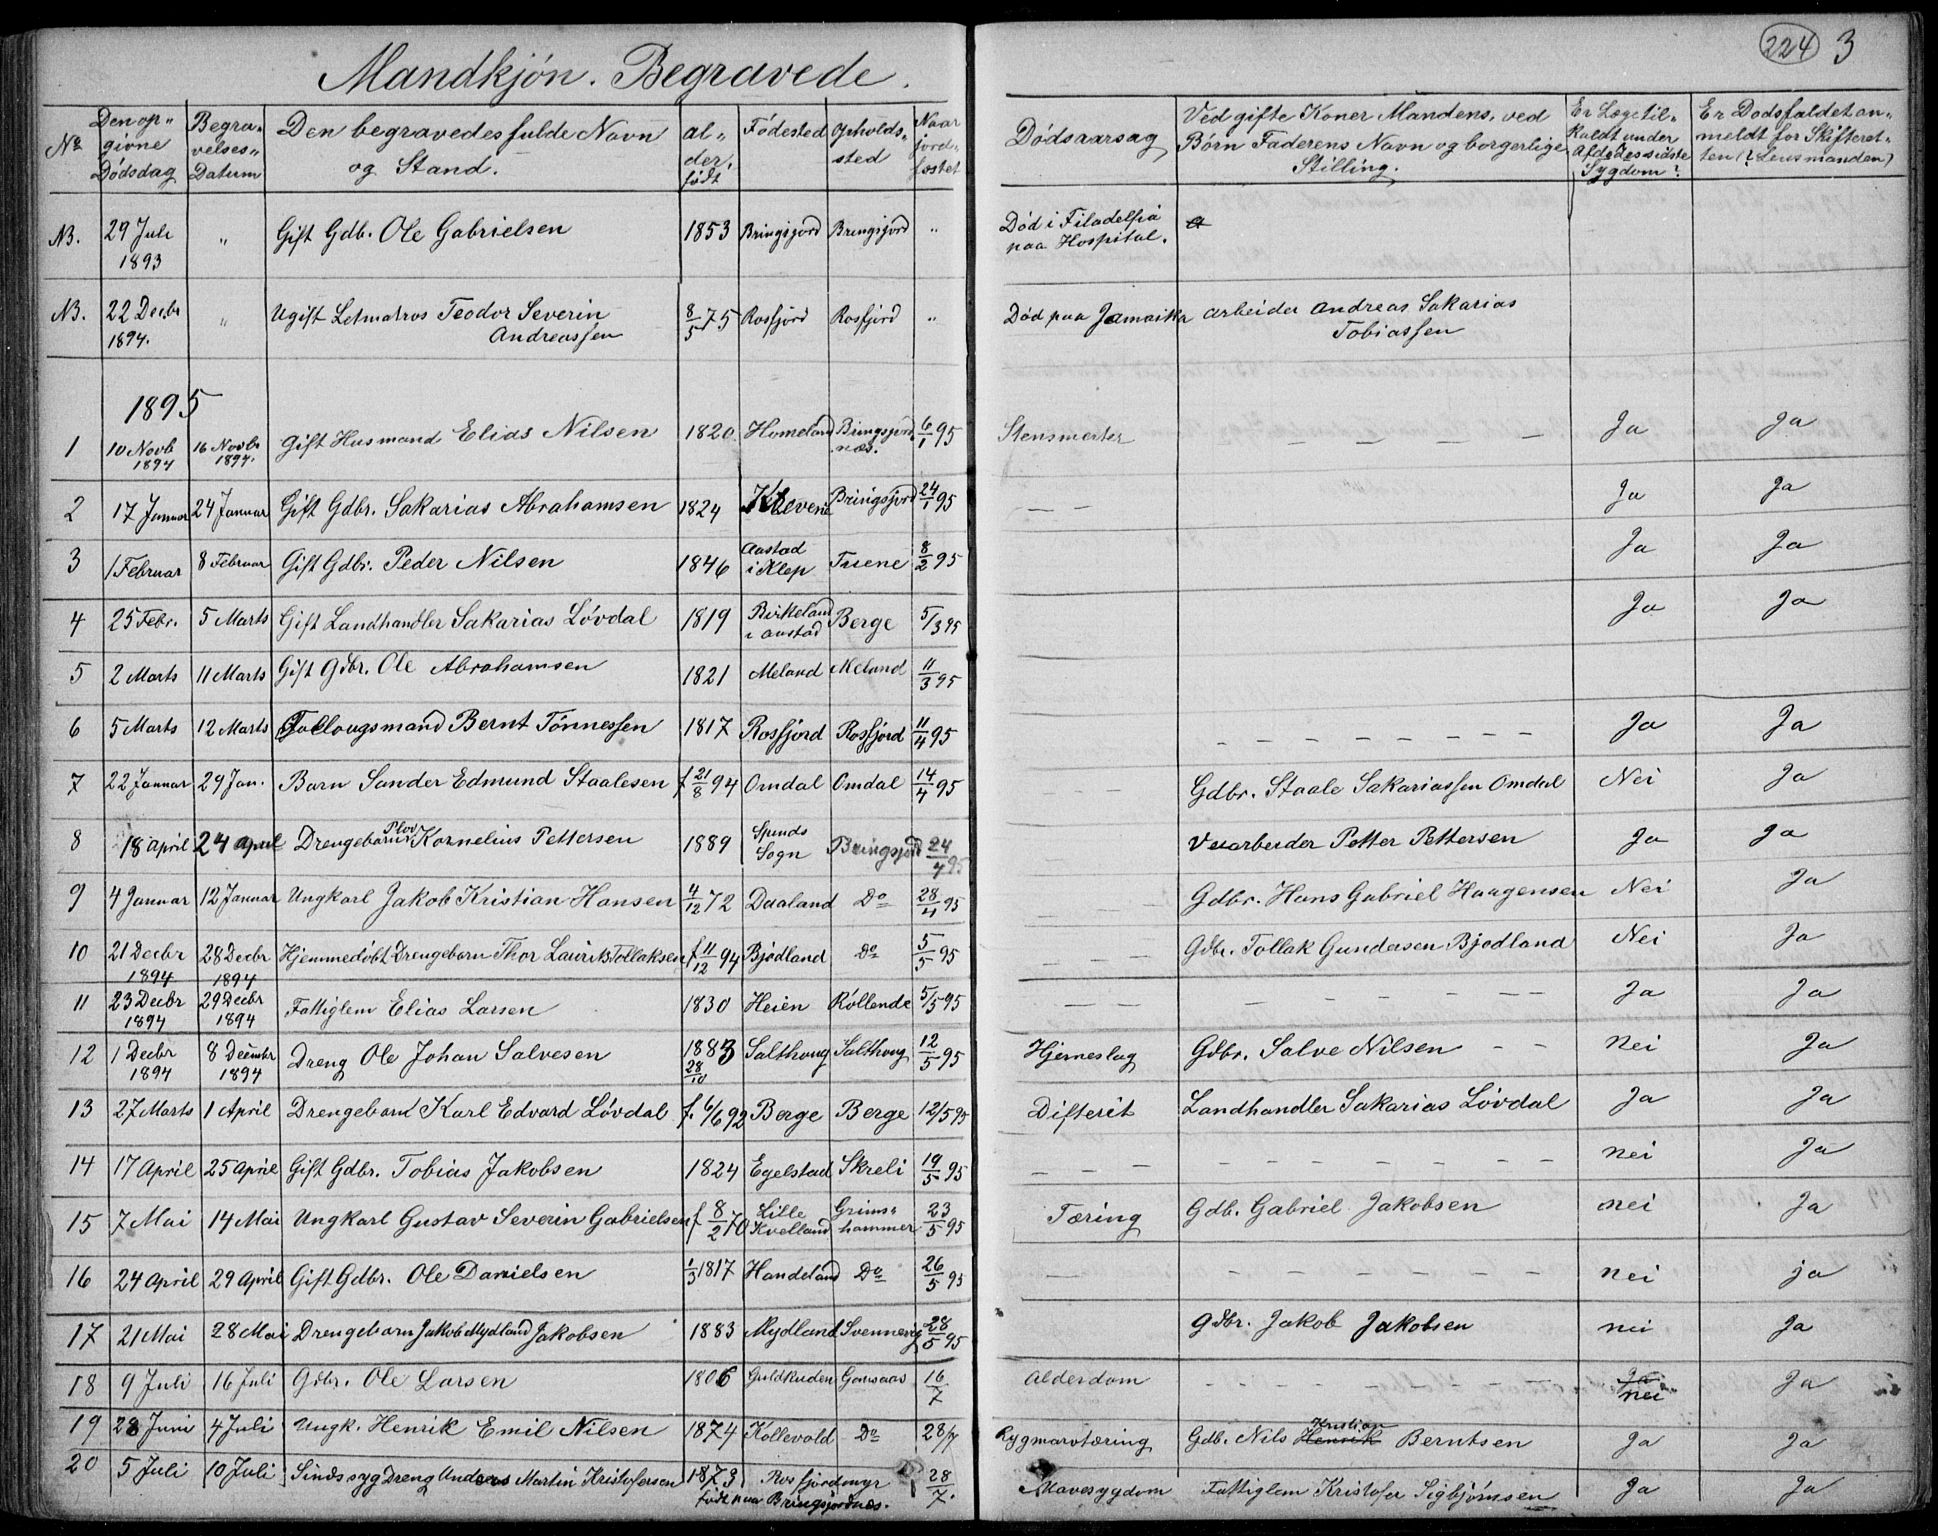 Mandkjön. Begravede.
224 3
No
Den op-givne Dödsdag
Begra-velses-Datum
Den begravedes fulde Navn og Stand.
al-der, födt
Födested
Opholds-sted
Naar jord-fæstet
Dödsaarsag
Ved gifte Koner Mandens, ved Börn Faderens Navn og borgerlige Stilling.
Er Lægetil-kaldt under Afdödes sidste Sygdom?
Er Dødsfaldet an-meldt for Skifteret-ten (? Lensmanden)
NB. 29 Juli 1893 " Gift Gdb. Ole Gabrielsen 1853 Bringsjord Bringsjord " Död i Filadelfia paa Hospital.
NB. 22 Decbr 1894. " Ugift Letmatros Teodor Severin Andreassen 8/5 75 Rosfjord Rosfjord " Död paa Jamaika arbeider Andreas Sakarias Tobiassen
1895
1 10 Novb 1894 16 Novbr 1894. Gift Husmand Elias Nilsen 1820 Homeland Bringsjord næs. 6/1 95 Stensmerter – – – – – Ja Ja
2 17 Januar 24 Januar Gift Gdbr. Sakarias Abrahamsen 1824 Klevene Bringsjord 24/1 95 – – Ja Ja
3 1 Februar 8 Februar Gift Gdbr. Peder Nilsen 1846 Austad i Klep 8/2 95 Ja Ja
4 25 Febr. 5 Marts Gift Landhandler Sakarias Lövdal 1819 Birkeland i Austad Berge 5/3 95 Ja Ja
5 2 Marts 11 Marts Gift Gdbr. Ole Abrahamsen 1821 Meland Meland 11/3 95
6 5 Marts 12 Marts Follougsmand Bernt Tönnessen 1817 Rosfjord Rosfjord 11/4 95 – – – – – – – – Ja Ja
7 22 Januar 29 Jan. Barn Sander Edmund Staalesen f 21/8 94 Omdal Omdal 14/4 95 – – – Gdbr. Staale Sakariassen Omdal Nei Ja
8 18 April 24 April Drengebarn Plov Kornelius Pettersen 1889 Spinds Sogn Bringsjord 24/4 95 Veiarbeider Petter Pettersen Ja Ja
9 4 Januar 12 Januar Ungkarl Jakob Kristian Hansen 4/12 72 Daaland Do 28/4 95 – – – Gdbr. Hans Gabriel Haagensen Nei Ja
10 21 Decbr 1894 28 Decbr 1894 Hjemmedöbt Drengebarn Thor Laurits Tollaksen f 11/12 94 Bjödland Do 5/5 95 – – – Gdbr. Tollak Gundersen Bjodland Nei Ja
11 23 Decbr 1894 29 Decbr 1894 Fattiglem Elias Larsen 1830 Heien Röllende 5/5 95 – – – – – – – – Ja Ja
12 1 Decbr 1894 8 Decembr 1894 Dreng Ole Johan Salvesen 1883 28/10 Salthoug Salthoug 12/5 95 Hjerneslag Gdbr. Salve Nilsen – – nei Ja
13 27 Marts 1 April Drengebarn Karl Edvard Lövdal f. 6/6 92 Berge Berge 12/5 95 Difterit Landhandler Sakarias Lövdal Ja Ja
14 17 April 25 April Gift Gdbr. Tobias Jakobsen 1824 Egelstad Skreli 19/5 95 – – – – – – – – nei Ja
15 7 Mai 14 Mai Ungkarl Gustav Severin Gabrielsen f 8/2 70 Lille Kvelland Grims-hammer 23/5 95 Tæring Gdb. Gabriel Jakobsen nei Ja
16 24 April 29 April Gift Gdbr. Ole Danielsen 1/3 1817 Handeland Do 26/5 95 – – – – – – – – nei ja
17 21 Mai 28 Mai Drengebarn Jakob Mydland Jakobsen 1883 Mydland Svennevig 28/5 95 Gdbr. Jakob Jakobsen nei Ja
18 9 Juli 16 Juli Gdbr. Ole Larsen 1806 Guldkuden Gausaas 16/7 Alderdom – – – – – – – Ja nei Ja
19 28 Juni 4 Juli Ungk. Henrik Emil Nilsen 1874 Kollevold Do 28/7 Rygmarvtæring Gdb. Nils Henrik Kristian Berntsen Ja Ja
20 5 Juli 10 Juli Sindssyg Dreng Anders Martin Kristofersen 1873 Rosfjordmyr födt paa Bringsjordnes. 28/7. Mavesygdom Fattiglem Kristofer Sigbjörnsen Ja Ja